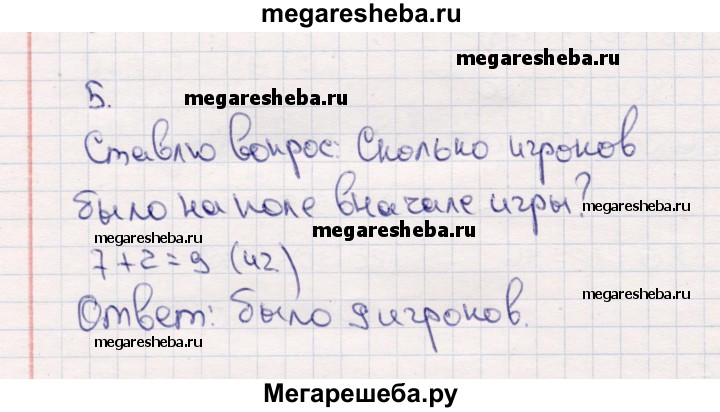 megaresheba.ru
megaresheba.ru
5.
megaresheba.ru
Ставлю вопрос: Сколько игроков
было на поле вначале игры?
megaresheba.ru
megaresheba.ru
megaresheba.ru
7+2=9 (иг.)
megaresheba.ru
Ответ: было 9 игроков.
megaresheba.ru
Мегарешеба.ру